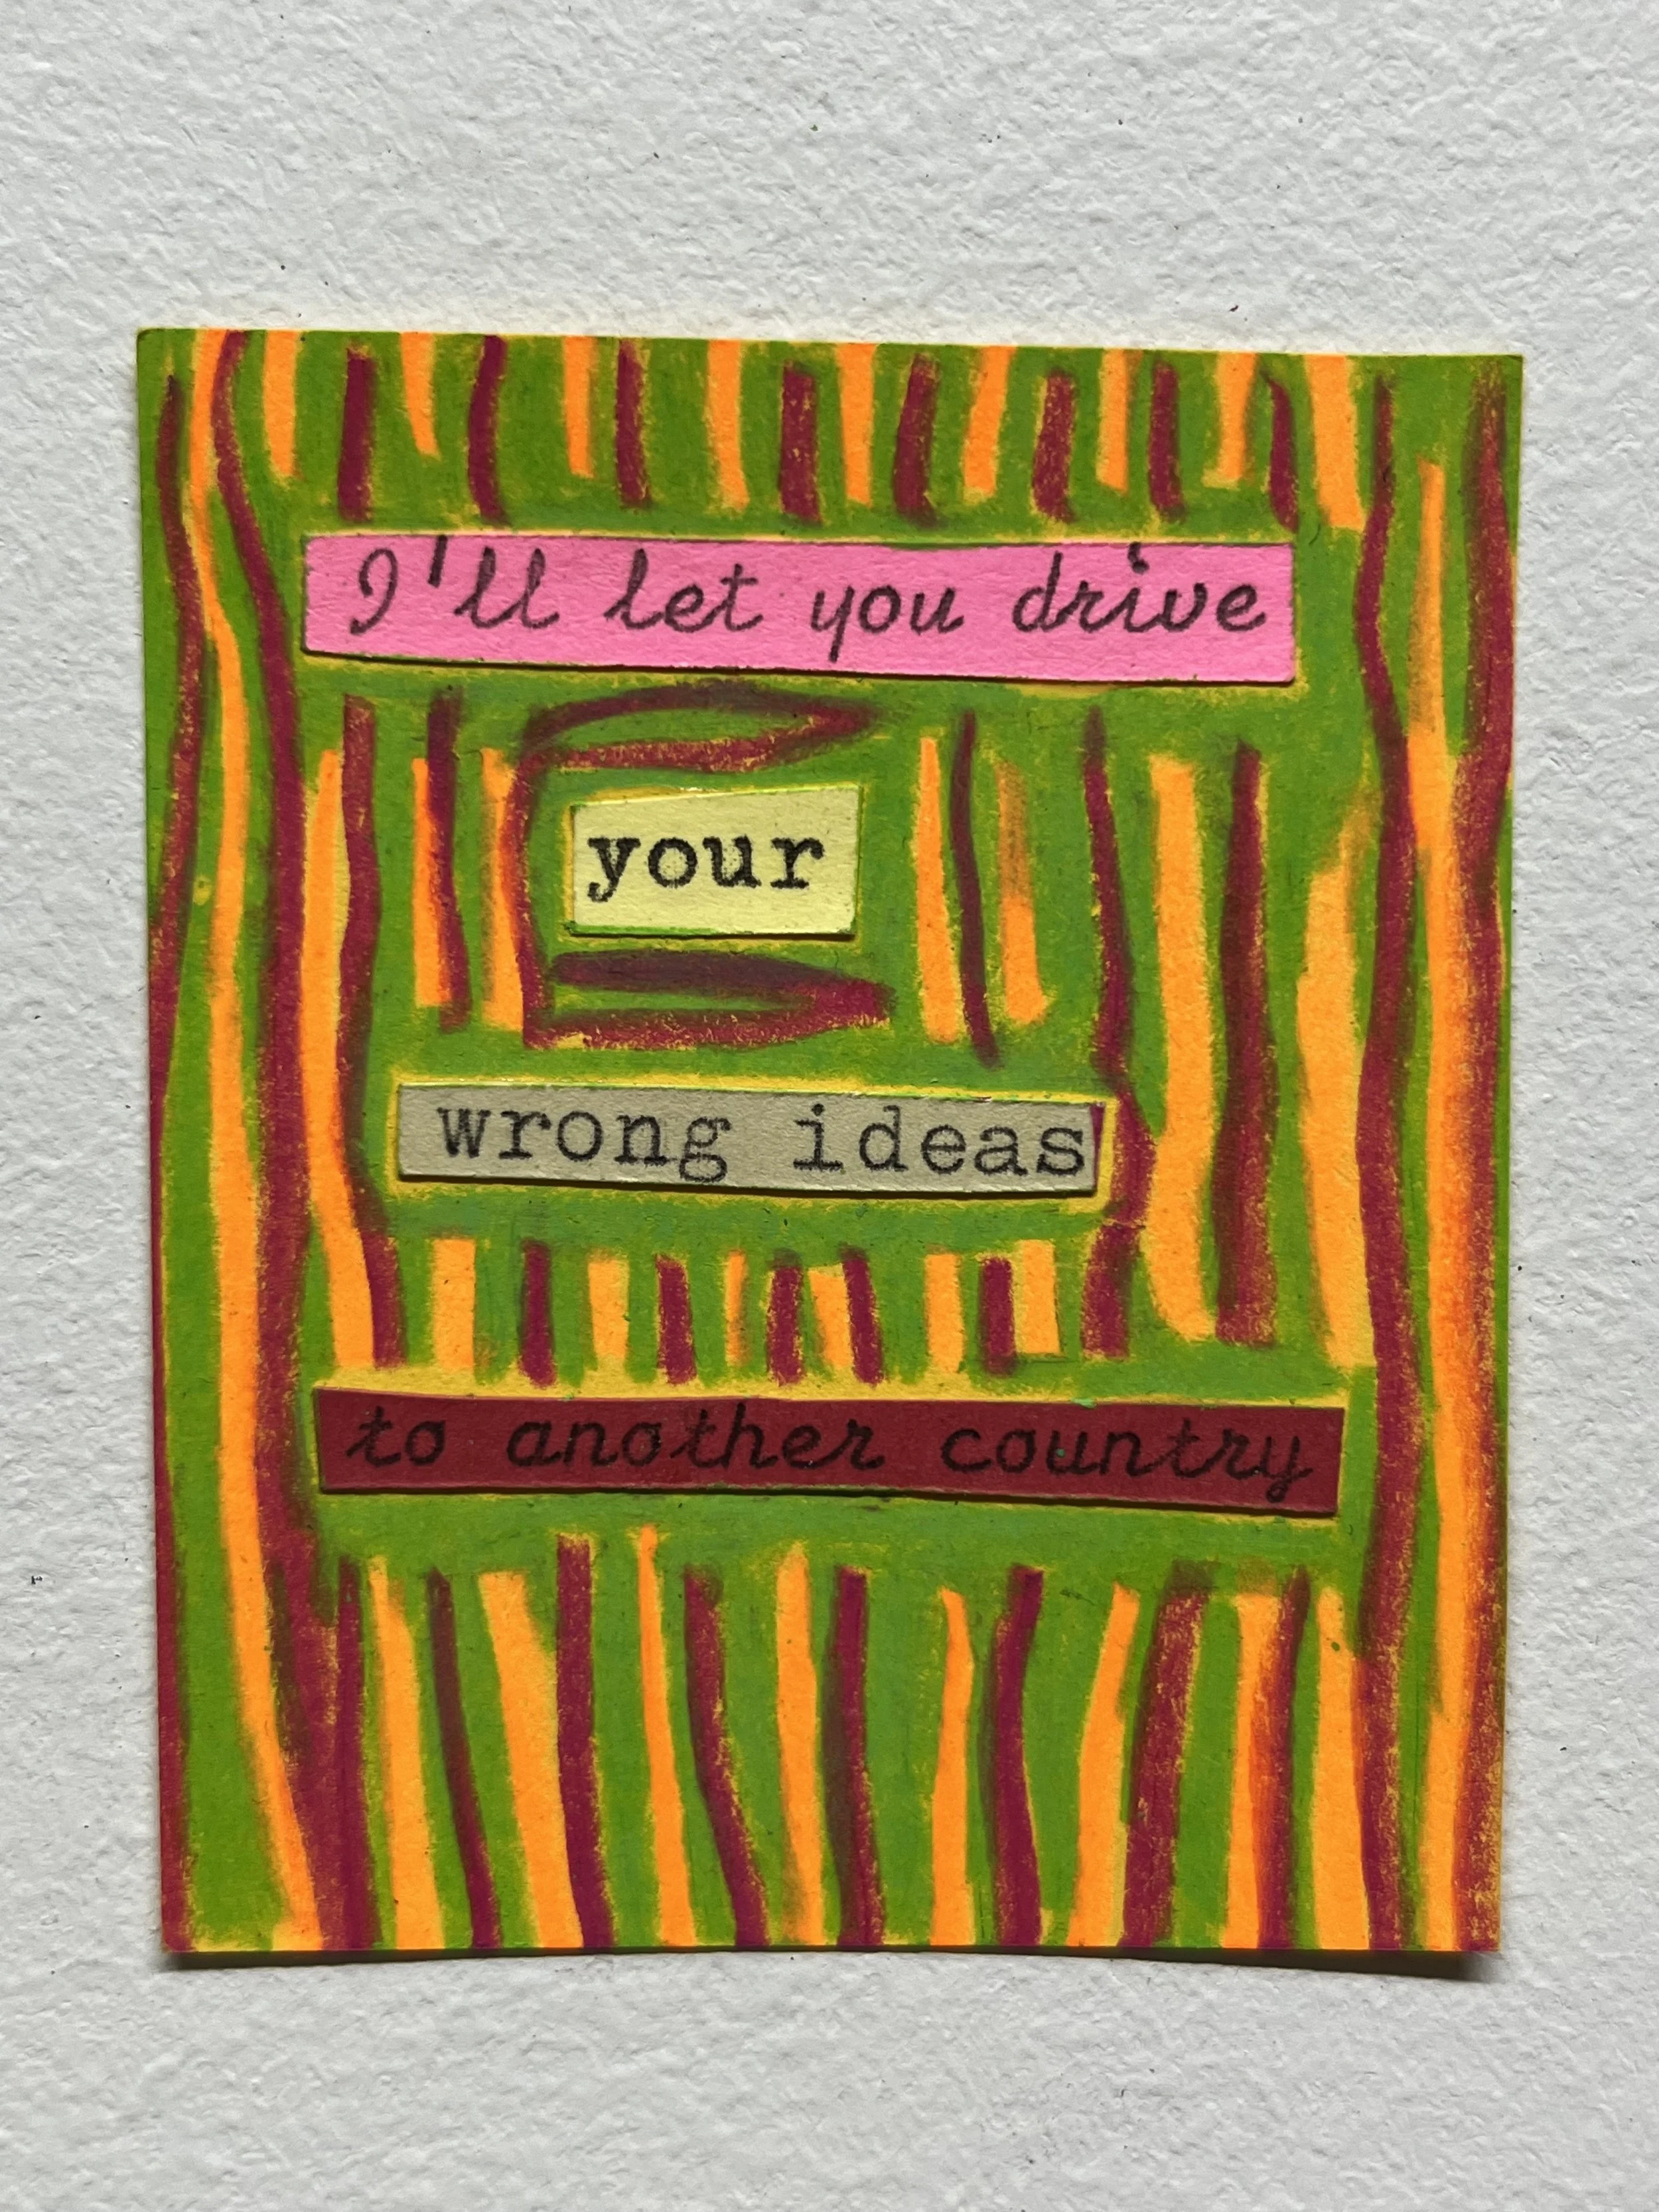 I'll let you drive
your
wrong ideas
to another country